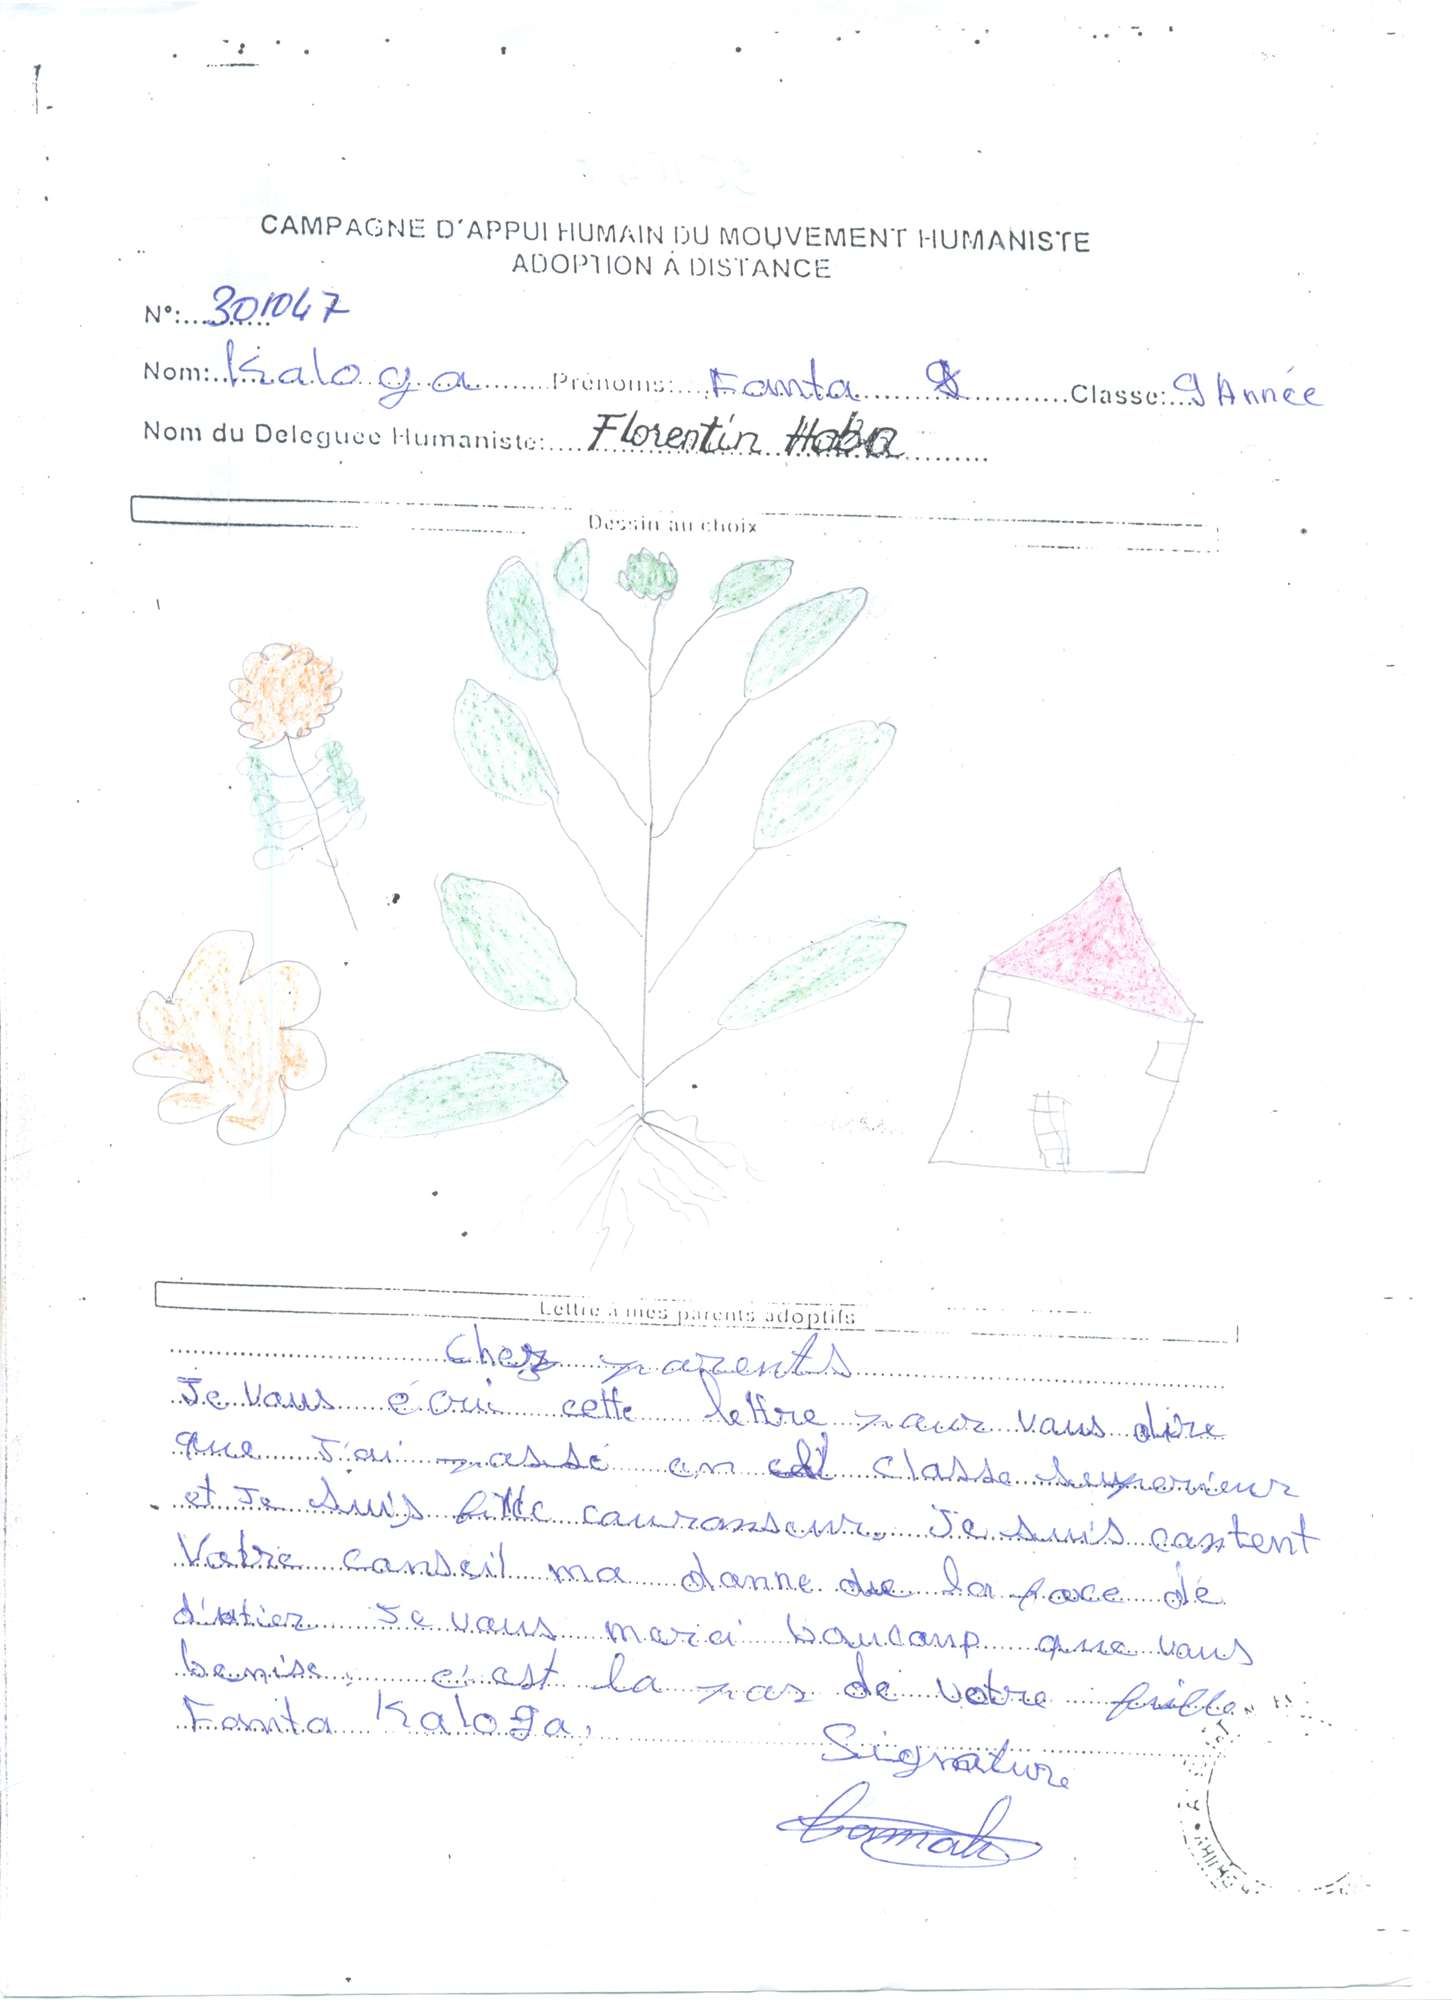 CAMPAGNE D'APPUI HUMAIN DU MOUVEMENT HUMANISTE
ADOPTION À DISTANCE
N°: 301047
Nom: Kaloga Prénoms: Fanta Classe: 9 Année
Nom du Deleguee Humaniste: Florentin Haba
Dessin au choix
Lettre à mes parents adoptifs
Chez parents
Je vous écrui cette lettre pour vous dire
que J'ai passé en classe Superieur
et Je suis Je suis contont
Votre conseil ma donne de la force de
Je vous merci boucoup que vous
benise, c'est la pas de votre
Fanta Kaloga,
Signature